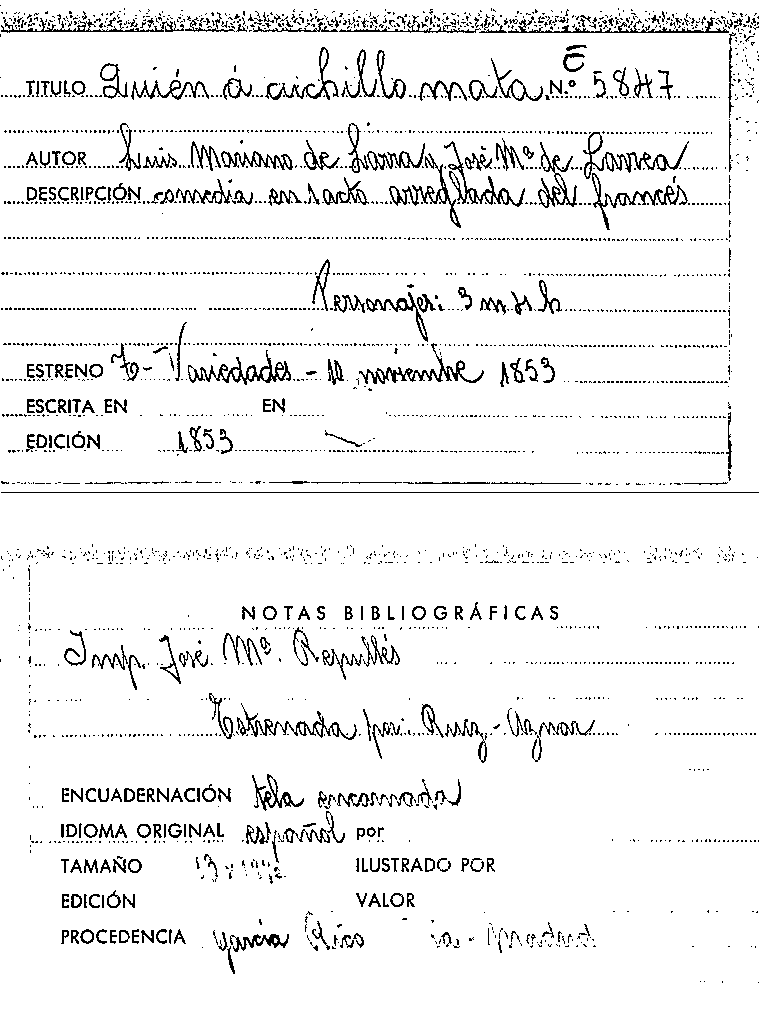 E
TITULO Quién á cuchillo mata. N.º 5847
AUTOR Luis Mariano de Larra y José Mª de Larrea
DESCRIPCIÓN comedia en 1 acto arreglada del francés
Personajes: 3 m. 4 h
ESTRENO Tº - Variedades - 10 noviembre 1853
ESCRITA EN EN
EDICIÓN 1853
NOTAS BIBLIOGRÁFICAS
Imp. José Mª. Repullés
Estrenada por: Ruiz - Aznar
ENCUADERNACIÓN tela encarnada
IDIOMA ORIGINAL español por
TAMAÑO 13 x ILUSTRADO POR
EDICIÓN VALOR
PROCEDENCIA García Rico - Madrid